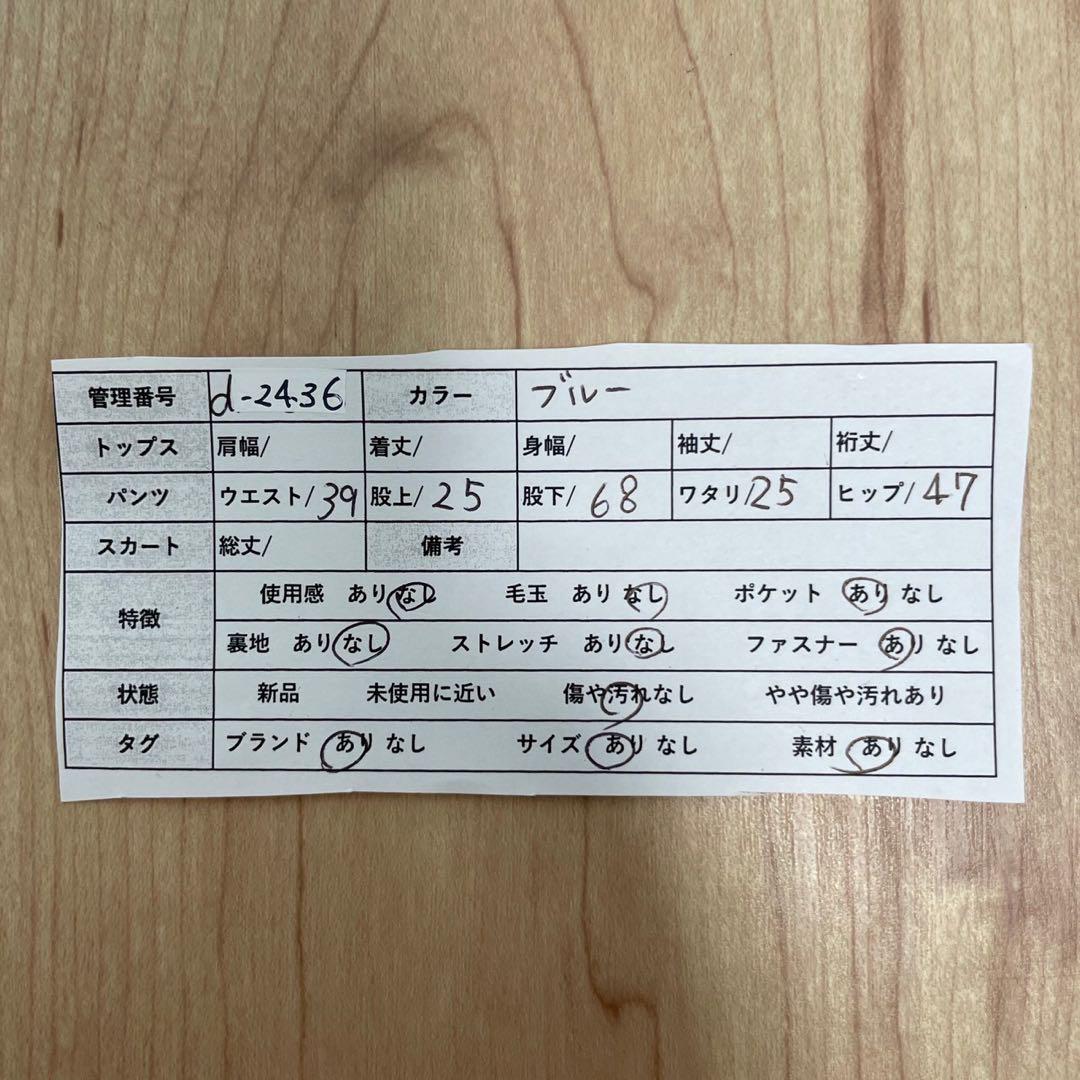 管理番号 d-2436 カラー ブルー
トップス 肩幅/ 着丈/ 身幅/ 袖丈/ 裄丈/
パンツ ウエスト/39 股上/25 股下/68 ワタリ/25 ヒップ/47
スカート 総丈/ 備考
特徴 使用感 あり なし 毛玉 あり なし ポケット あり なし
裏地 あり なし ストレッチ あり なし ファスナー あり なし
状態 新品 未使用に近い 傷や汚れなし やや傷や汚れあり
タグ ブランド あり なし サイズ あり なし 素材 あり なし